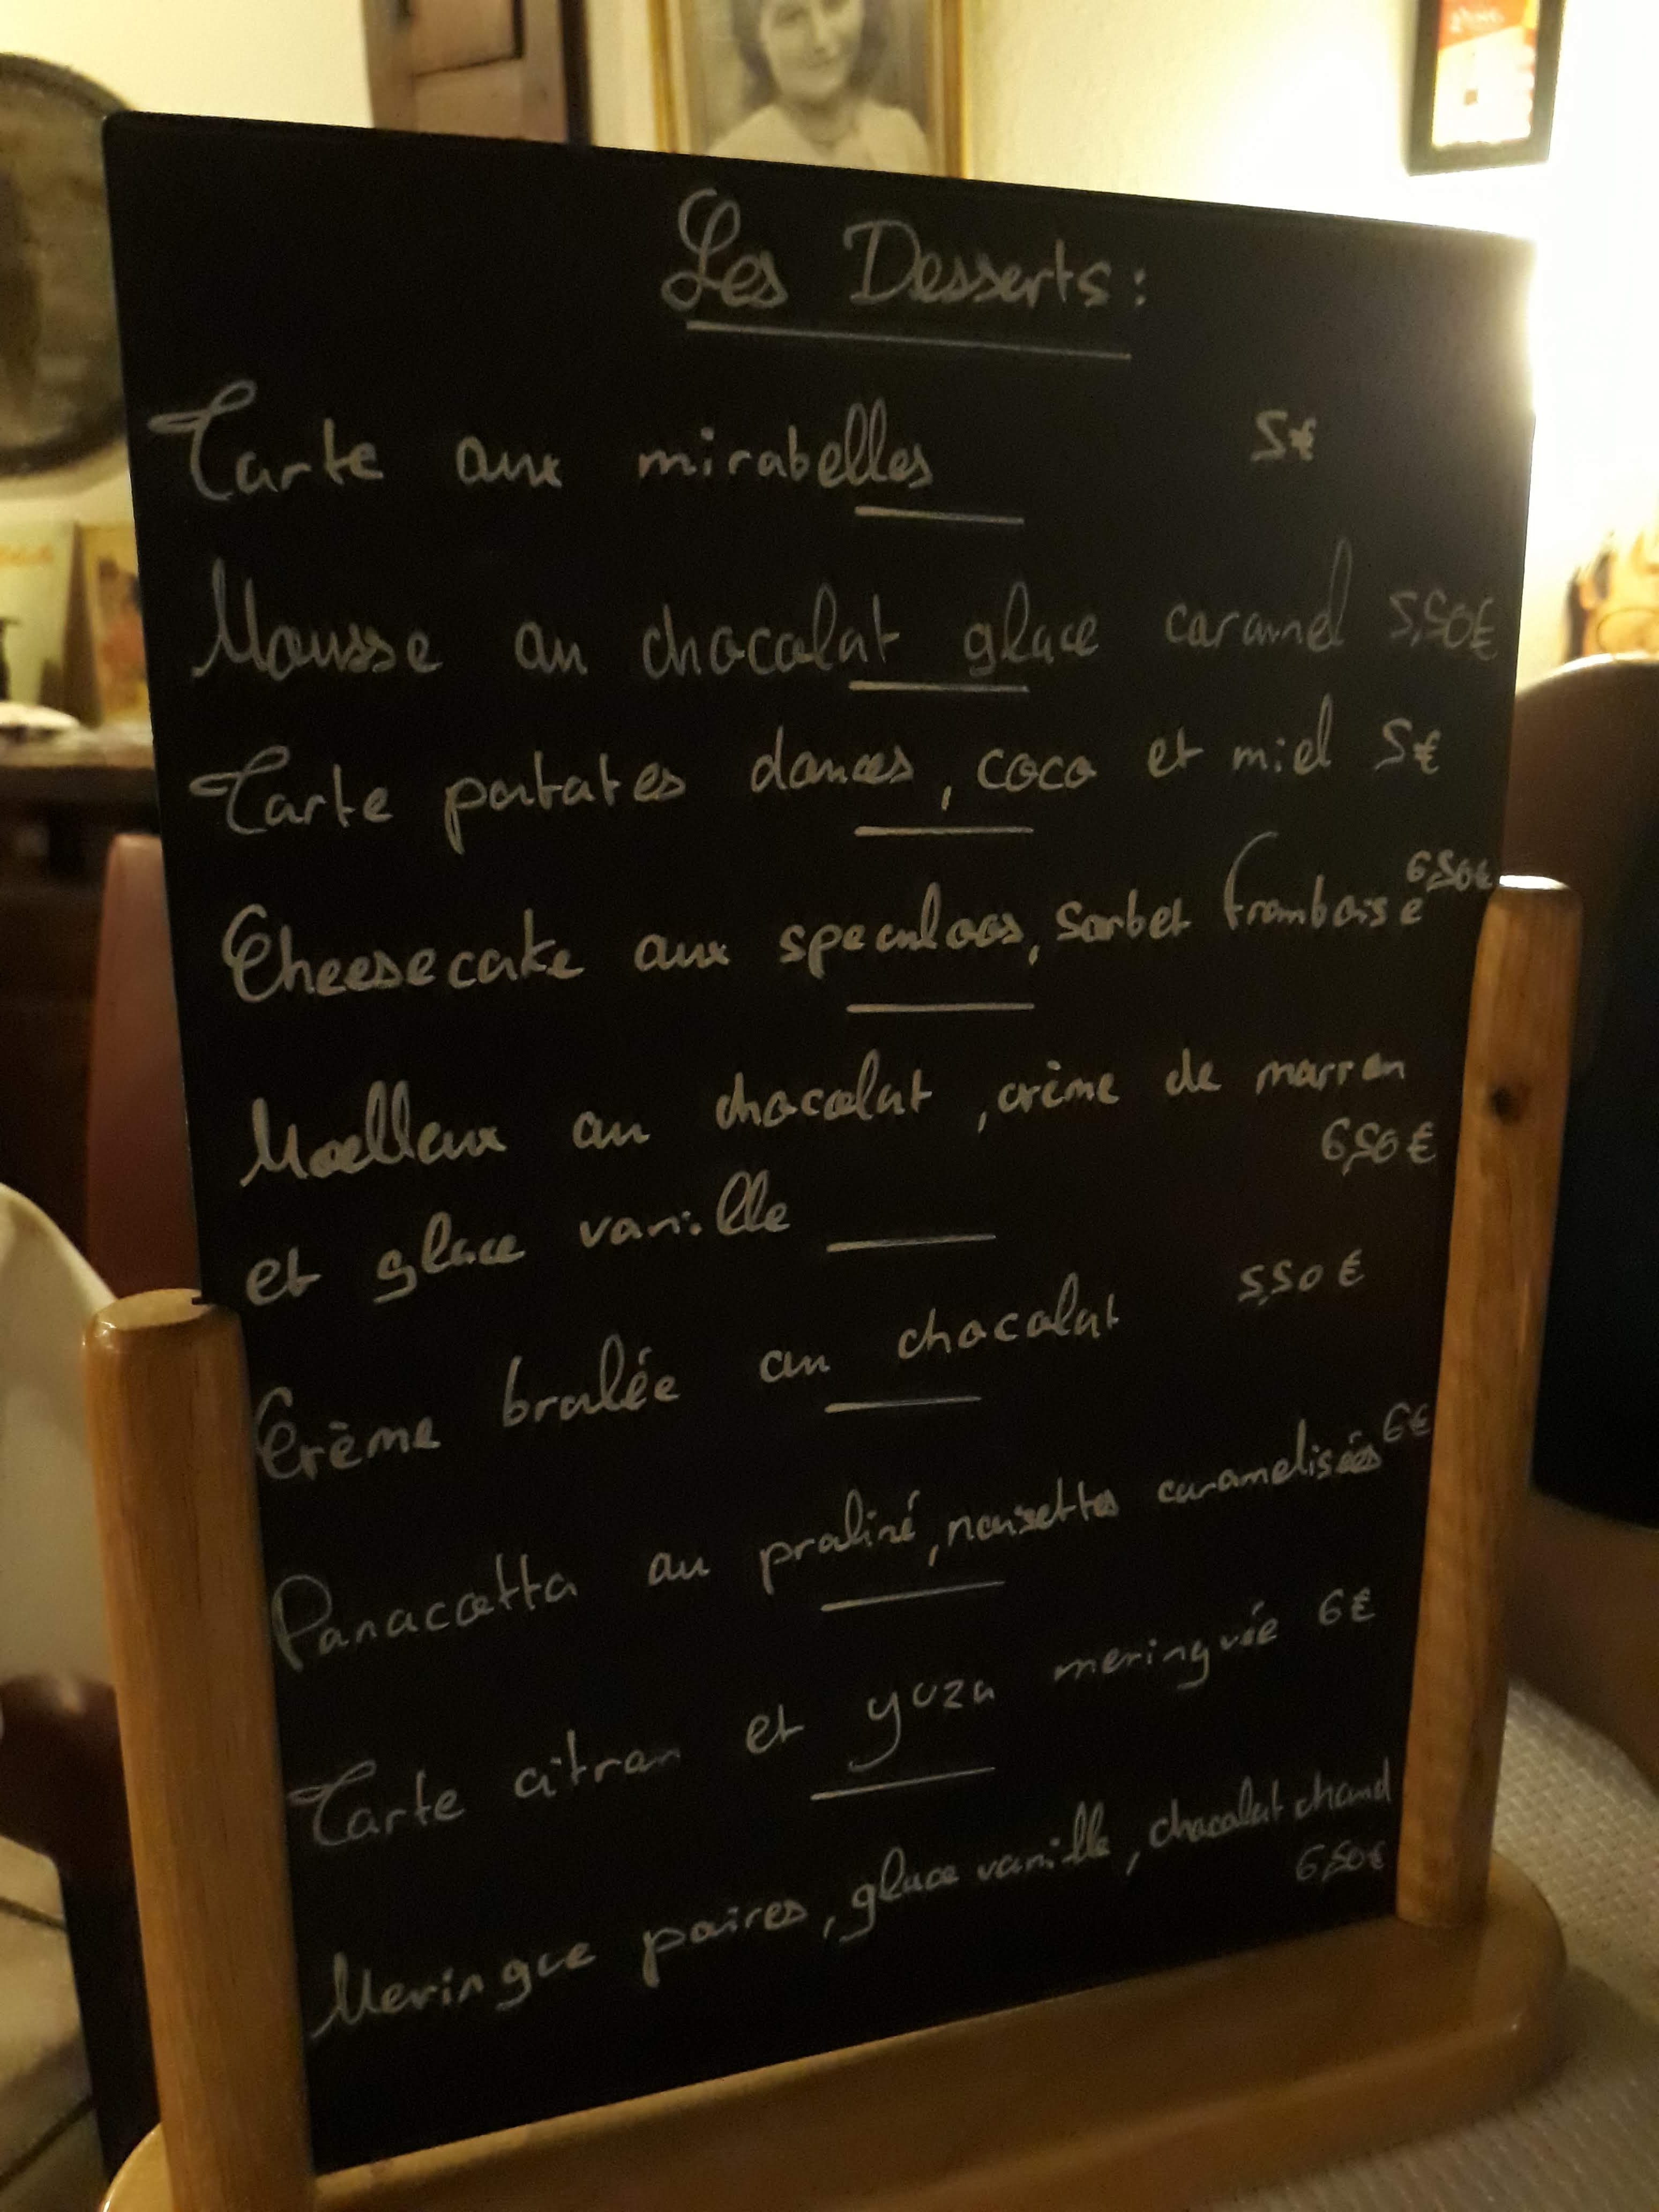 Les Desserts :
Tarte aux mirabelles 5€
Mousse au chocolat glace caramel 5,50€
Tarte patates douces, coco et miel 5€
Cheesecake aux speculoos, sorbet framboise 6,50€
Moelleux au chocolat, crème de marron
6,50€
et glace vanille
Crème brulée au chocolat 5,50€
Panacotta au praliné, noisettes caramelisées 6€
Tarte citron et yuzu meringuée 6€
Meringue poires, glace vanille, chocolat chaud
6,50€